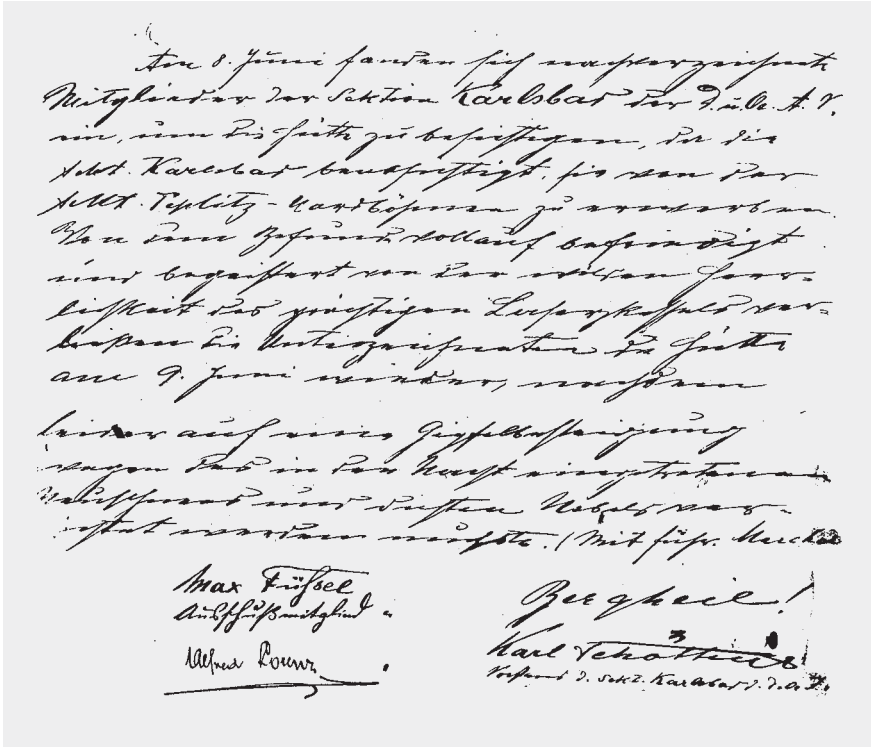 Am 8. Juni fanden sich nachverzeichnete
Mitglieder der Sektion Karlsbad der D. u. Oe. A. V.
ein, um die Hütte zu besichtigen, da die
Sekt. Karlsbad beabsichtigt, sie von der
Sekt. Teplitz-Nordböhmen zu erwerben.
Von dem Befund vollauf befriedigt
und begeistert von der wilden Herr-
lichkeit des prächtigen Laserzkessels ver-
ließen die Unterzeichneten die Hütte
am 9. Juni wieder, nachdem
leider auf eine Gipfelbesteigung
wegen des in der Nacht eingetretenen
Neuschnees und dichten Nebels ver-
zichtet werden mußte. (Mit Führ.
Max Führel
Ausschußmitglied
Bergheil!
Alfred
Karl
Vorstand d. Sekt. Karlsbad d. D. Oe. A.